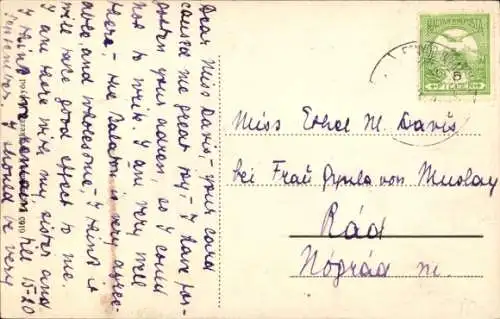 Dear Miss Davis,- your card
caused me great joy,- I have for-
gotten your adress, so I could
not to write. I am very well
here,- the Balaton is very agree-
able, and wholesome,- I think it
will have good effect to me.
I am here with my sister and
I think we remain till 15-20
September. I should be very
MAGYAR KIR. POSTA
Miss Ethel M. Davis
bei Frau Gyula von Muslay
Rád
Nógrád m.